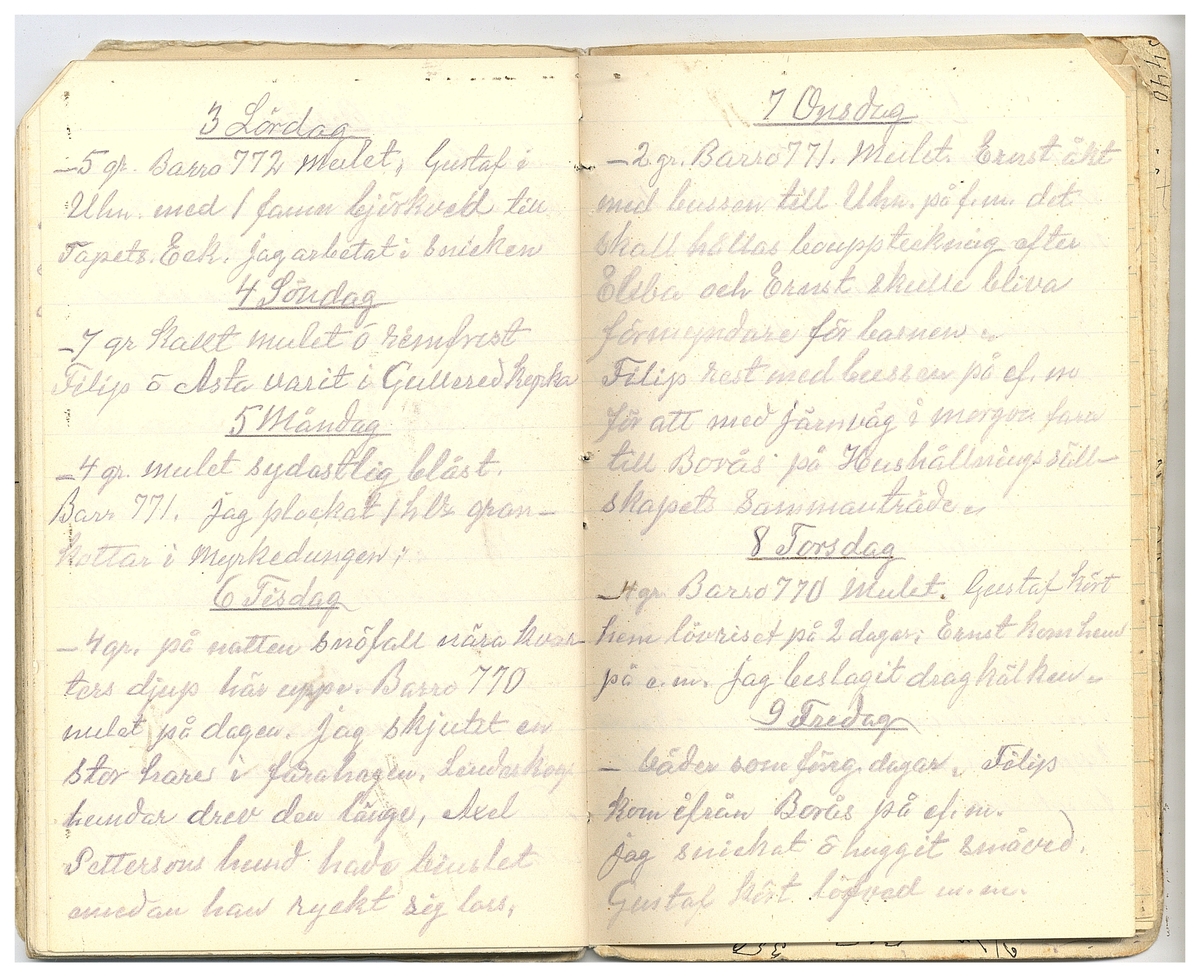 3 Lördag
-5 gr. Barro 772 Mulet, Gustaf i
Uhn. med 1 famn björkved till
Tapets. Eek. jag arbetat i snicken
4 Söndag
-7 gr Kallt mulet ö rimfrost
Filip ö Asta varit i Gullered kyrka
5 Måndag
-4 gr. mulet sydostlig blåst.
Barr 771. jag plockat 1 hl gran-
kottar i Myrkedungen,
6 Tisdag
-4 gr. på natten snöfall nära kvar-
ters djup här uppe. Barro 770
mulet på dagen. jag skjutit en
stor hare i fårahagen.
hundar drev den länge, Axel
Pettersons hund hade
emedan han ryckt sig loss,
7 Onsdag
-2 gr. Barro 771. Mulet. Ernst åkt
med bussen till Uhn. på f.m. det
skall hållas bouppteckning efter
och Ernst skulle bliva
förmyndare för barnen "
Filip rest med bussen på ef. m
för att med järnväg i morgon fara
till Borås på Hushållningssäll-
skapets sammanträde "
8 Torsdag
-4 gr Barro 770 Mulet. Gustaf kört
hem lövriset på 2 dagar; Ernst kom hem
på e.m. jag beslagit dragkälken "
9 Fredag
- både som föreg. dagar, Filip
kom ifrån Borås på ef. m.
jag snickat ö huggit småved.
Gustaf kört löfved m.m.
440